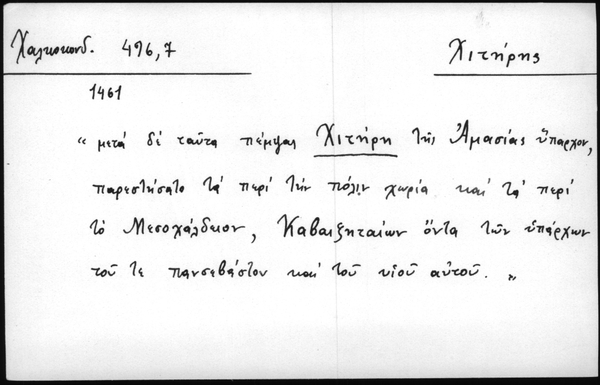 Χαλκοκονδ. 496,7 Χιτήρης
1461
“ μετά δέ ταῦτα πέμψας Χιτήρη τῆς Ἀμασίας ὕπαρχον,
παρεστήσατο τά περί τήν πόλιν χωρία καί τά περί
τό Μεσοχάλδειον, Καβαξηταίων ὄντα τῶν ὑπάρχων
τοῦ τε πανσεβάστου καί τοῦ υἱοῦ αὐτοῦ. „